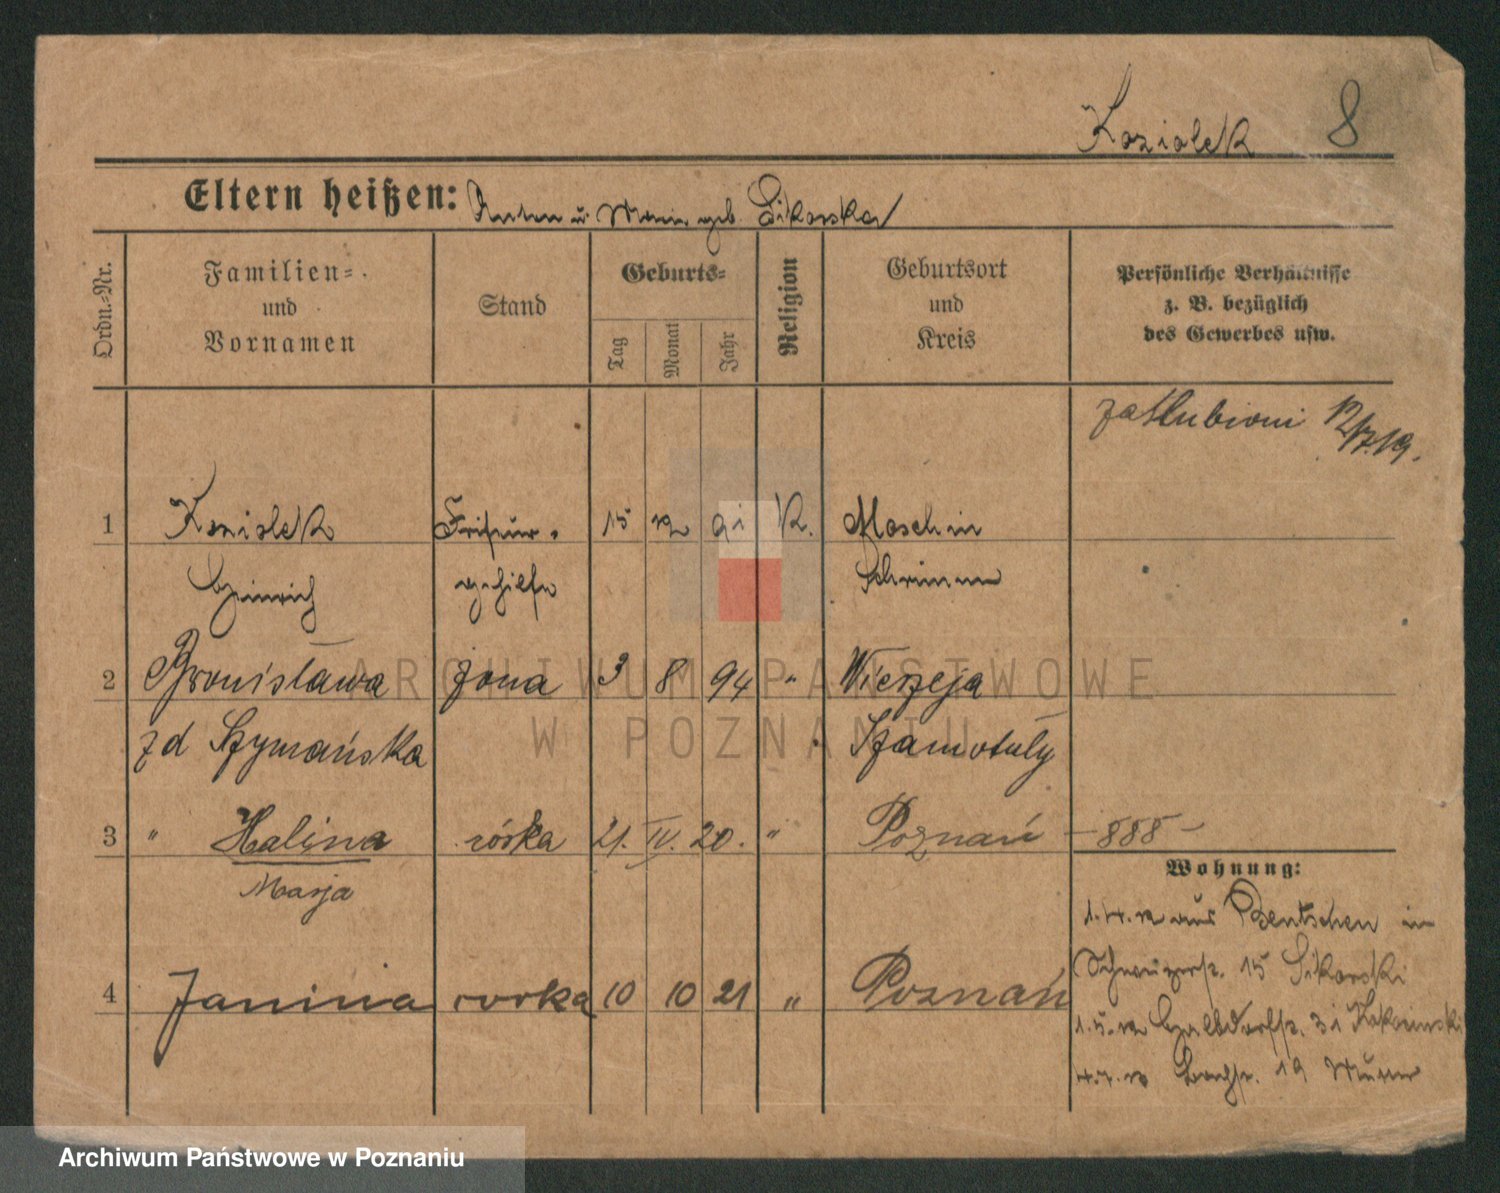 Koziolek 8
Eltern heißen: Anton u. Marie geb. Sikorska
Ordn.-Nr.
Familien-
und
Vornamen
Stand
Geburts-
Tag
Monat
Jahr
Religion
Geburtsort
und
Kreis
Persönliche Verhältnisse
z. B. bezüglich
des Gewerbes usw.
zaślubieni
1 Koziolek Friseur- 15 12 91 K. Moschin
Heinrich gehilfe Schrimm
2 Bronisława żona 3 8 94 " Wierzeja
zd Szymańska Szamotuły
3 " Halina córka 21. IV. 20. " Poznań – 888 –
Marja
4 Janina corka 10 10 21 " Poznań
Wohnung:
1.4.12 aus Bentschen in
15 Sikorski
1.5.12 31
4.7.12 19
ARCHIWUM PAŃSTWOWE
W POZNANIU
Archiwum Państwowe w Poznaniu